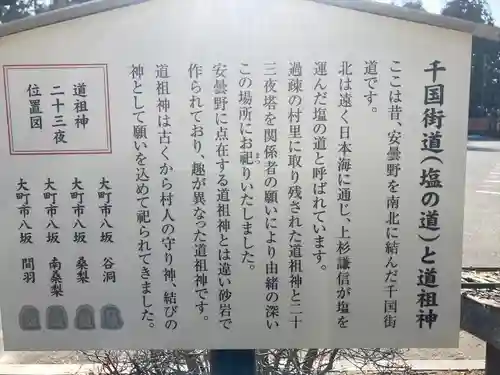 千国街道(塩の道)と道祖神
ここは昔、安曇野を南北に結んだ千国街
道です。
北は遠く日本海に通じ、上杉謙信が塩を
運んだ塩の道と呼ばれています。
過疎の村里に取り残された道祖神と二十
三夜塔を関係者の願いにより由緒の深い
この場所にお祀りいたしました。
まつ
安曇野に点在する道祖神とは違い砂岩で
作られており、趣が異なった道祖神です。
道祖神は古くから村人の守り神、結びの
神として願いを込めて祀られてきました。
道祖神
二十三夜
位置図
大町市八坂 谷洞
大町市八坂 桑梨
大町市八坂 南桑梨
大町市八坂 間羽